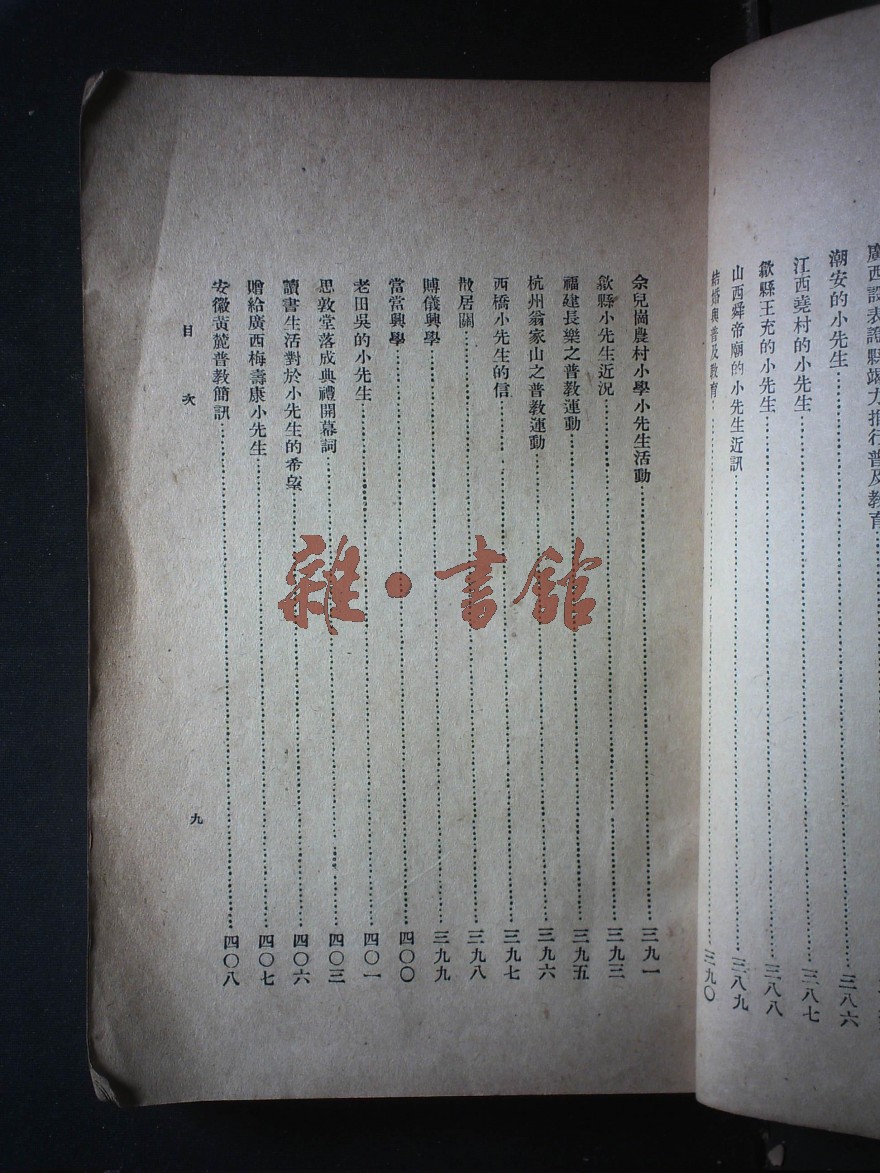 廣西設表證縣竭力推行普及教育
潮安的小先生……三八六
江西堯村的小先生……三八七
歙縣王充的小先生……三八八
山西舜帝廟的小先生近訊……三八九
結婚與普及教育……三九〇
佘兒崗農村小學小先生活動……三九一
歙縣小先生近況……三九三
福建長樂之普教運動……三九五
杭州翁家山之普教運動……三九六
西橋小先生的信……三九七
散居關……三九八
賻儀興學……三九九
當當興學……四〇〇
老田吳的小先生……四〇一
思敦堂落成典禮開幕詞……四〇三
讀書生活對於小先生的希望……四〇六
贈給廣西梅壽康小先生……四〇七
安徽黃麓普教簡訊……四〇八
目次
九
雜·書館